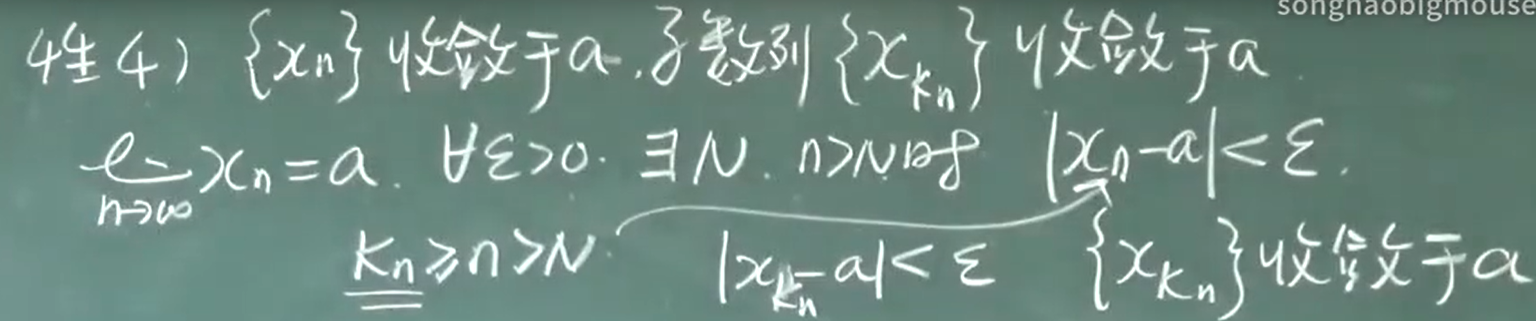 songhaobigmouse
性4) {xₙ}收敛于a.子数列{x_{kₙ}}收敛于a.
lim_{n→∞} xₙ=a. ∀ε>0. ∃N. n>N时 |xₙ-a|<ε.
kₙ≥n>N. |x_{kₙ}-a|<ε {x_{kₙ}}收敛于a